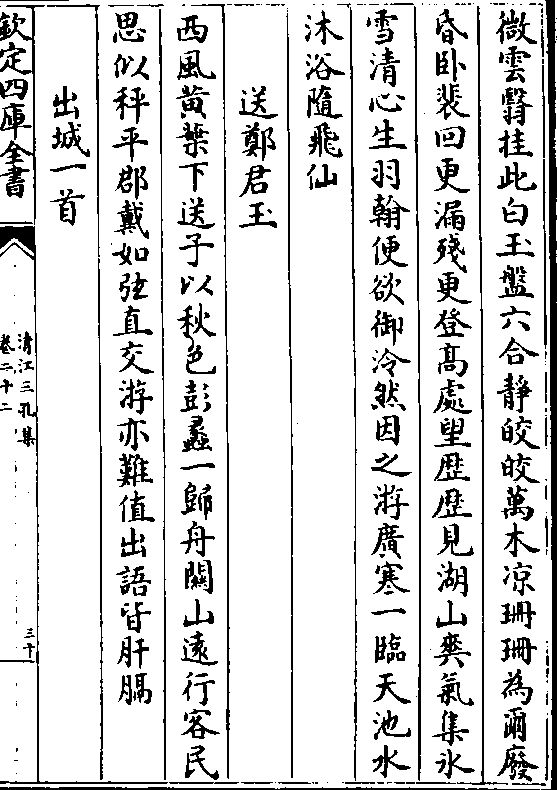 微雲翳挂此白玉盤六合静皎皎萬木凉珊珊為爾廢
昏卧裴回更漏殘更登髙處望歴歴見湖山爽氣集氷
雪清心生羽翰便欲御泠然因之游廣寒一臨天池水
沐浴隨飛仙
送鄭君玉
西風黄葉下送子以秋色彭蠡一歸舟關山逺行客民
思似秤平郡戴如弦直交游亦難值出語皆肝膈
出城一首
欽定四庫全書
清江三孔集
卷二十二
三十